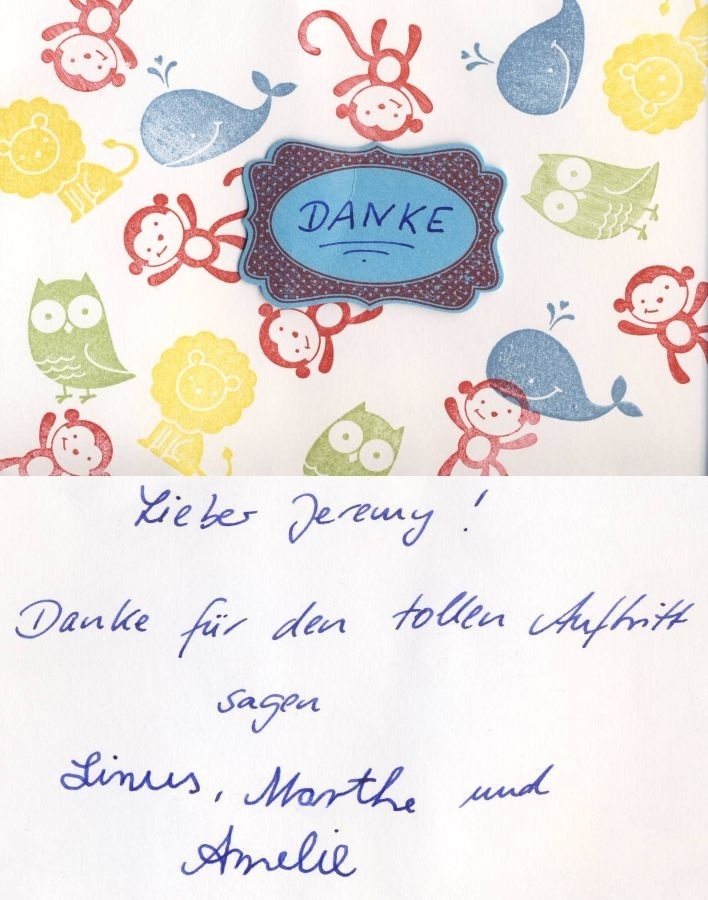 DANKE
Lieber Jeremy!
Danke für den tollen Auftritt
sagen
Linus, Marthe und
Amelie